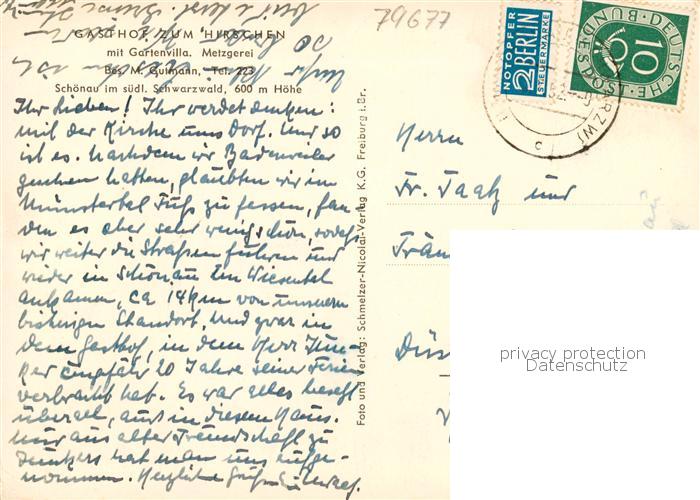 79677
GASTHOF ZUM HIRSCHEN
mit Gartenvilla. Metzgerei
Bes. M. Gutmann, Tel. 223
Schönau im südl. Schwarzwald, 600 m Höhe
Ihr Lieben! Ihr werdet denken:
mit der Kirche ums Dorf. Und so
ist es. Nachdem wir Badenweiler
gesehen hatten, glaubten wir im
Münstertal Fuß zu fassen, fan-
den es aber sehr wenig schön, sodaß
wir weiter die Straßen fuhren und
wieder in Schönau im Wiesental
ankamen, ca 14 km von unserem
bisherigen Standort. Und zwar in
dem Gasthof, in dem Herr Jun-
ker ungefähr 20 Jahre seiner Ferien
verbracht hat. Es war alles besetzt
überall, auch in diesem Haus.
Nur aus alter Freundschaft zu
Junkers hat man uns aufge-
nommen. Herzliche Grüße
Foto und Verlag: Schmelzer-Nicolai-Verlag K.G. Freiburg i. Br.
NOTOPFER
2 BERLIN
STEUERMARKE
DEUTSCHE BUNDESPOST
10
Herrn
Fr. Taatz und
privacy protection
Datenschutz